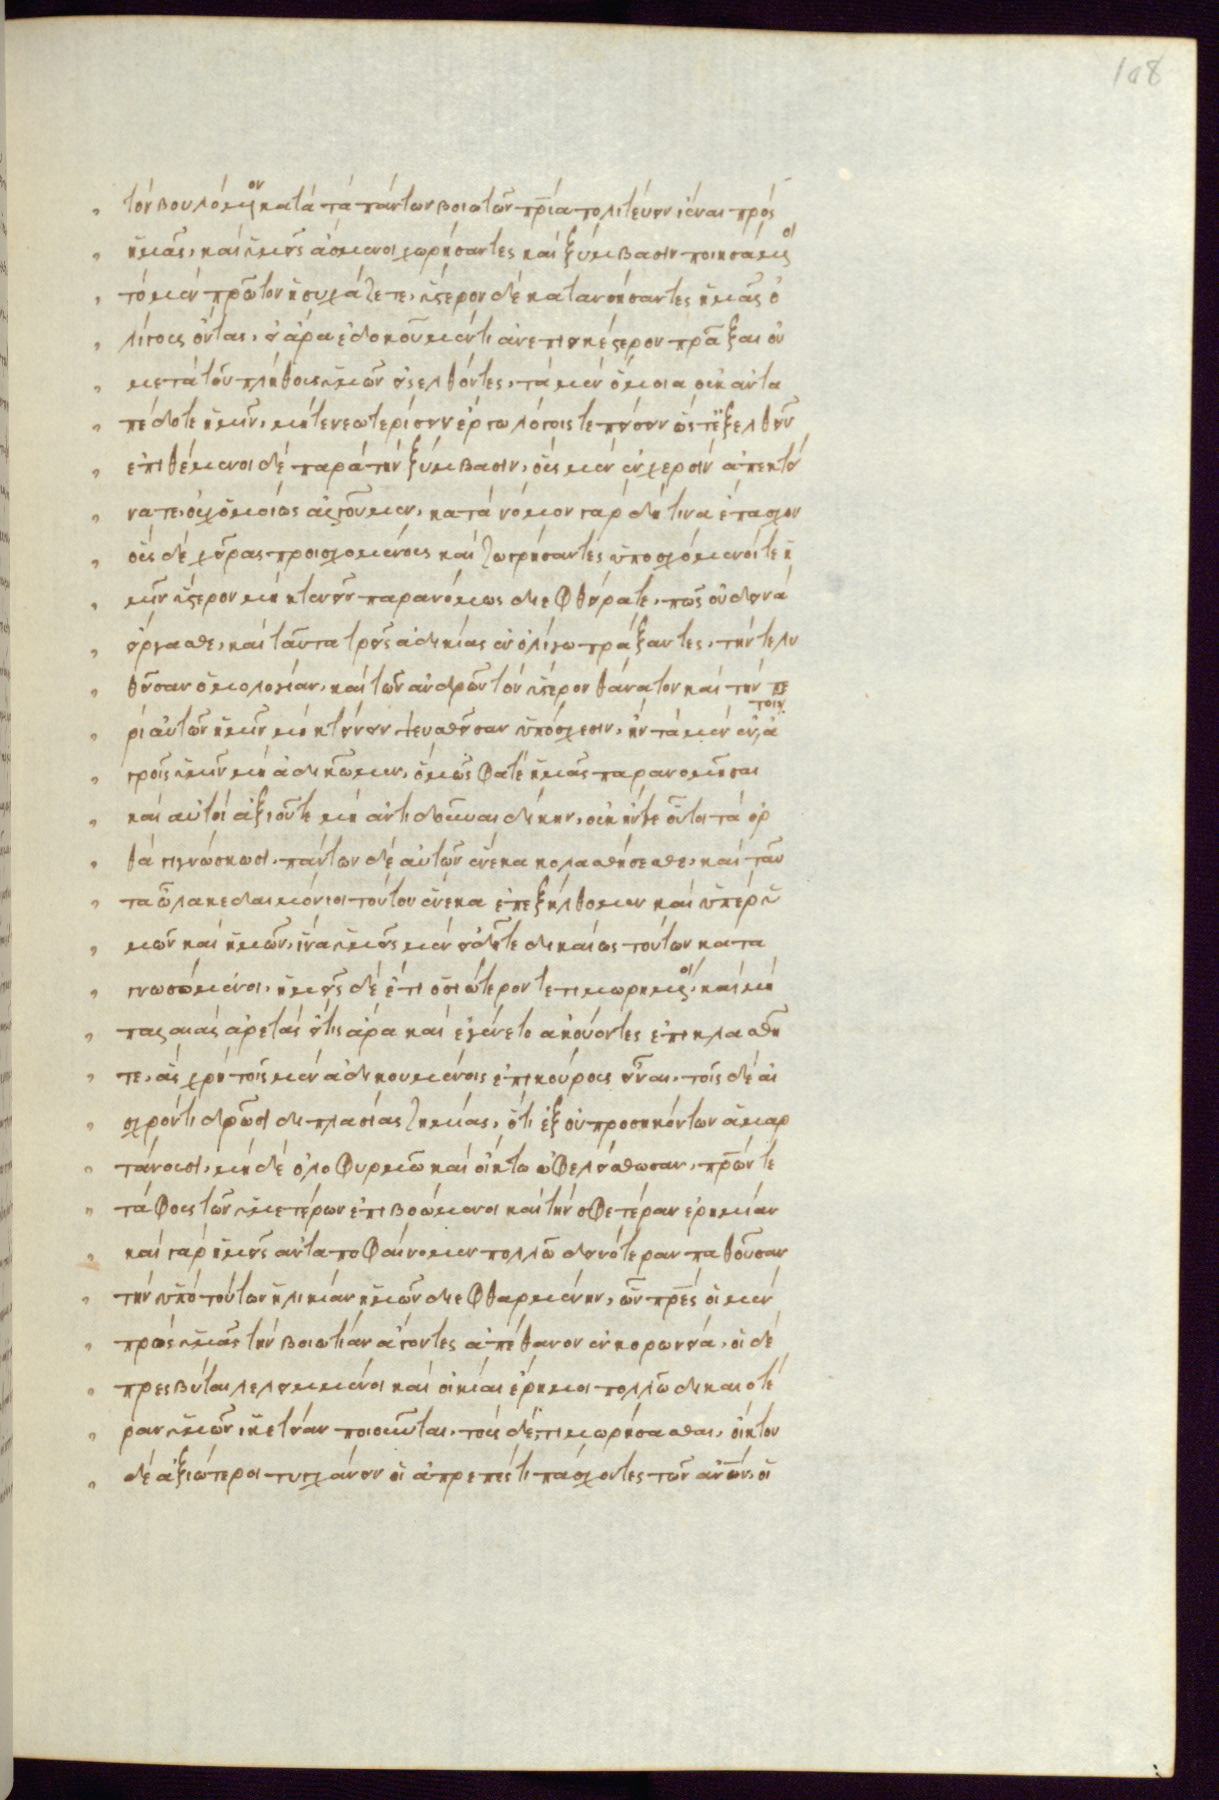 108
τὸν βουλόμ(εν)ον κατὰ τὰ πάντων βοιωτῶν πρ̅ια πολιτεύειν ἰέναι πρὸς
ἡμᾶς, καὶ ὑμεῖς ἄσμενοι χωρήσαντες καὶ ξύμβασιν ποιησάμ(εν)οι
τὸ μὲν πρῶτον ἡσυχάζετε, ὕστερον δὲ κατανοήσαντες ἡμᾶς ὀ
λίγους ὄντας, εἰ ἄρα ἐδοκοῦμέν τι ἀνεπιεικέστερον πρᾶξαι οὐ
μετὰ τοῦ πλήθους ὑμῶν εἰσελθόντες, τὰ μὲν ὅμοια οὐκ ἀντα
πέδοτε ἡμῖν, μήτε νεωτερίσειν ἔργω λόγοις τε πείσειν ὥστε ἐξελθεῖν
ἐπιθέμενοι δὲ παρὰ τὴν ξύμβασιν, οὓς μὲν ἐν χερσὶν ἀπεκτεί
νατε, οὐχ ὁμοίως ἀλγοῦμεν, κατὰ νόμον γὰρ δή τινα ἔπασχον
οὓς δὲ χεῖρας προισχομένους καὶ ζωγρήσαντες ὑποσχόμενοί τε ἡ
μῖν ὕστερον μὴ κτενεῖν παρανόμως διεφθείρατε, πῶς οὐ δεινὰ
εἴργασθε, καὶ ταῦτα τρεῖς ἀδικίας ἐν ὀλίγω πράξαντες, τήν τε λυ
θεῖσαν ὁμολογίαν, καὶ τῶν ἀνδρῶν τὸν ὕστερον θάνατον καὶ τὴν πε
ρὶ αὐτῶν ἡμῖν μὴ κτείνειν ψευσθεῖσαν ὑπόσχεσιν, ἢν τὰ ἐν τοῖς ἀ
γροῖς ὑμῖν μὴ ἀδικῶμεν, ὅμως φατὲ ἡμᾶς παρανομῆσαι
καὶ αὐτοὶ ἀξιοῦτε μὴ ἀντιδοῦναι δίκην, οὐκ ἤν γε οὗτοι τὰ ὀρ
θὰ γιγνώσκωσι, πάντων δὲ αὐτῶν ἕνεκα κολασθήσεσθε, καὶ ταῦ
τα ὦ λακεδαιμόνιοι τούτου ἕνεκα ἐπεξήλθομεν καὶ ὑπὲρ ὑ
μῶν καὶ ἡμῶν, ἵνα ὑμεῖς μὲν εἰδῆτε δικαίως τούτων κατα
γνωσόμενοι, ἡμεῖς δὲ ἔτι ὁσιώτερον τετιμωρημ(έν)οι, καὶ μὴ
παλαιὰς ἀρετὰς εἴ τις ἄρα καὶ ἐγένετο ἀκούοντες ἐπικλασθῆ
τε, ἃς χρὴ τοῖς μὲν ἀδικουμένοις ἐπικούρους εἶναι, τοῖς δὲ αἰ
σχρόν τι δρῶσι διπλασίας ζημίας, ὅτι ἐξ οὐ προσηκόντων ἁμαρ
τάνουσι, μηδὲ ὀλοφυρμῶ καὶ οἴκτω ὠφελείσθωσαν, πρ̅ων τε
τάφους τῶν ὑμετέρων ἐπιβοώμενοι καὶ τὴν σφετέραν ἐρημίαν
καὶ γὰρ ἡμεῖς ἀνταποφαίνομεν πολλῶ δεινότερα παθοῦσαν
τὴν ὑπὸ τούτων ἡλικίαν ἡμῶν διεφθαρμένην, ὧν πρ̅ες οἱ μὲν
πρὸς ὑμᾶς τὴν βοιωτίαν ἄγοντες ἀπέθανον ἐν κορωνεία, οἱ δὲ
πρεσβῦται λελειμμένοι καὶ οἰκίαι ἔρημοι πολλῶ δικαιοτέ
ραν ὑμῶν ἱκετείαν ποιοῦνται, τούσδε τιμωρήσασθαι, οἴκτου
δὲ ἀξιώτεροι τυγχάνειν οἱ ἀπρεπές τι πάσχοντες τῶν ἀν̅ων, οἱ